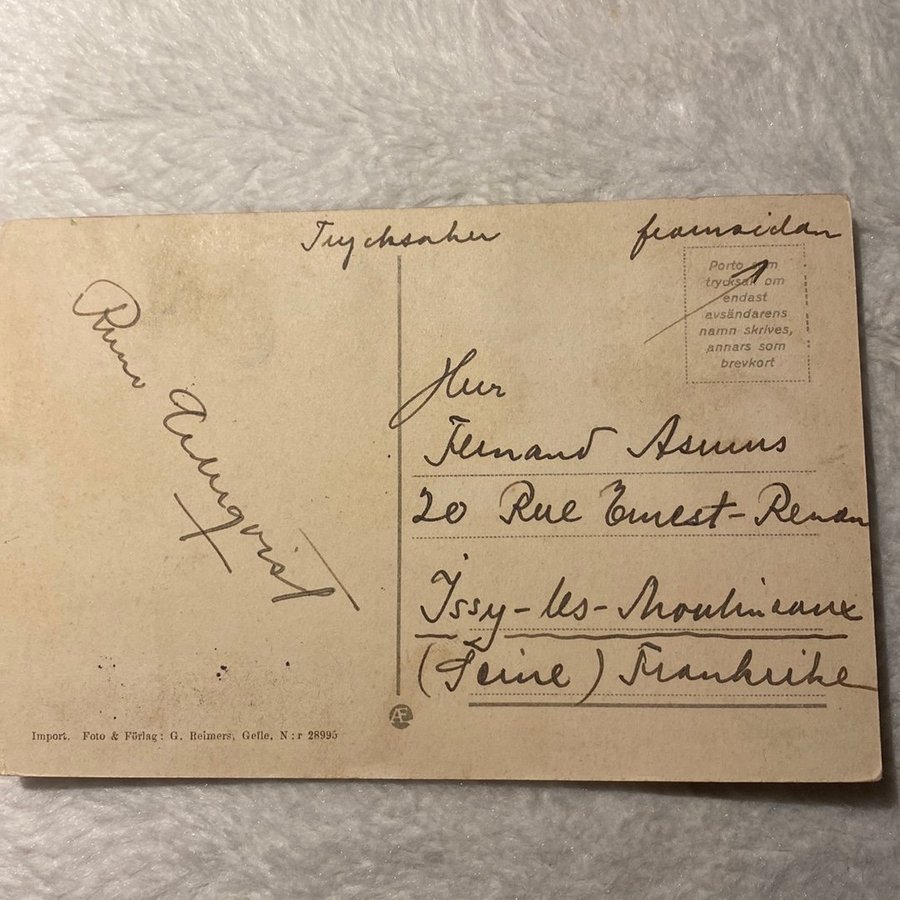 Trycksaker framsidan
Porto som
trycksak om
endast
avsändarens
namn skrives,
annars som
brevkort
Rune
Herr
Fernand Asmus
20 Rue Ernest-Renan
Issy-les-Moulineaux
(Seine) Frankrike
Import. Foto & Förlag: G. Reimers, Gefle, N:r 28995